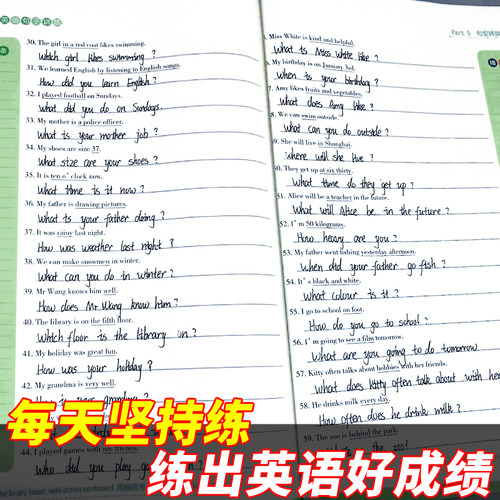 英语句子训练
30. The girl in a red coat likes swimming.
Which girl likes swimming ?
31. We learned English by listening to English songs.
How did you learn English ?
32. I played football on Sundays.
What did you do on Sundays.
33. My mother is a police officer.
What is your mother job ?
34. My shoes are size 37.
What size are your shoes ?
35. It is ten o'clock now.
What time is it now ?
36. My father is drawing pictures.
What is your father doing ?
37. It was rainy last night.
How was weather last night ?
38. We can make snowmen in winter.
What can you do in winter ?
39. Mr Wang knows him well.
How does Mr Wang know him ?
40. The library is on the fifth floor.
Which floor is the library on ?
41. My holiday was great fun.
How was your holiday ?
42. My grandma is very well.
44. I played games with my friends.
Who did you play
Part 5 句型转换
Miss White is kind and helpful.
What is Miss White like ?
My birthday is on January 3rd.
When is your birthday ?
7. Amy likes fruits and vegetables.
What does Amy like ?
8. We can swim outside.
What can you do outside ?
49. She will live in Shanghai.
Where will she live ?
50. They get up at six thirty.
What time do they get up ?
51. Alice will be a teacher in the future.
What will Alice be in the future ?
52. I'm 50 kilograms.
How heavy are you ?
53. My father went fishing yesterday afternoon.
When did your father go fish ?
54. It's black and white.
What colour is it ?
55. I go to school on foot.
How do you go to school ?
56. I'm going to see a film tomorrow.
What are you going to do tomorrow
57. Kitty often talks about hobbies with her friends.
What does Kitty often talk about with her
58. He drinks milk every day.
How often does he drink milk ?
59. The zoo is behind the park.
the zoo ?
每天坚持练
练出英语好成绩